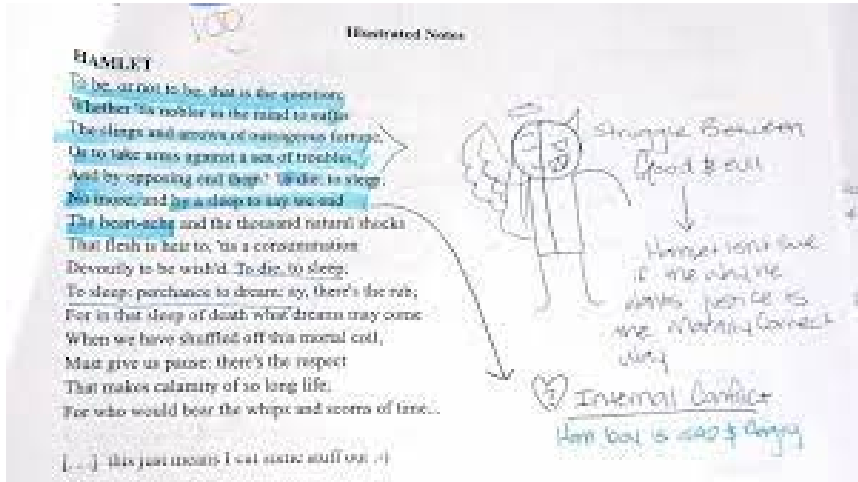 100
Illustrated Notes
HAMLET
To be, or not to be, that is the question:
Whether 'tis nobler in the mind to suffer
The slings and arrows of outrageous fortune,
Or to take arms against a sea of troubles,
And by opposing end them? To die: to sleep;
No more; and by a sleep to say we end
The heart-ache and the thousand natural shocks
That flesh is heir to, 'tis a consummation
Devoutly to be wish'd. To die, to sleep;
To sleep: perchance to dream: ay, there's the rub;
For in that sleep of death what dreams may come
When we have shuffled off this mortal coil,
Must give us pause: there's the respect
That makes calamity of so long life;
For who would bear the whips and scorns of time...
[...] this just means I cut some stuff out :-)
Struggle Between
Good & evil
Hamlet isn't sure
if the way he
wants justice is
the Morally Correct
way
Internal Conflict
Ham boy is sad & Angry